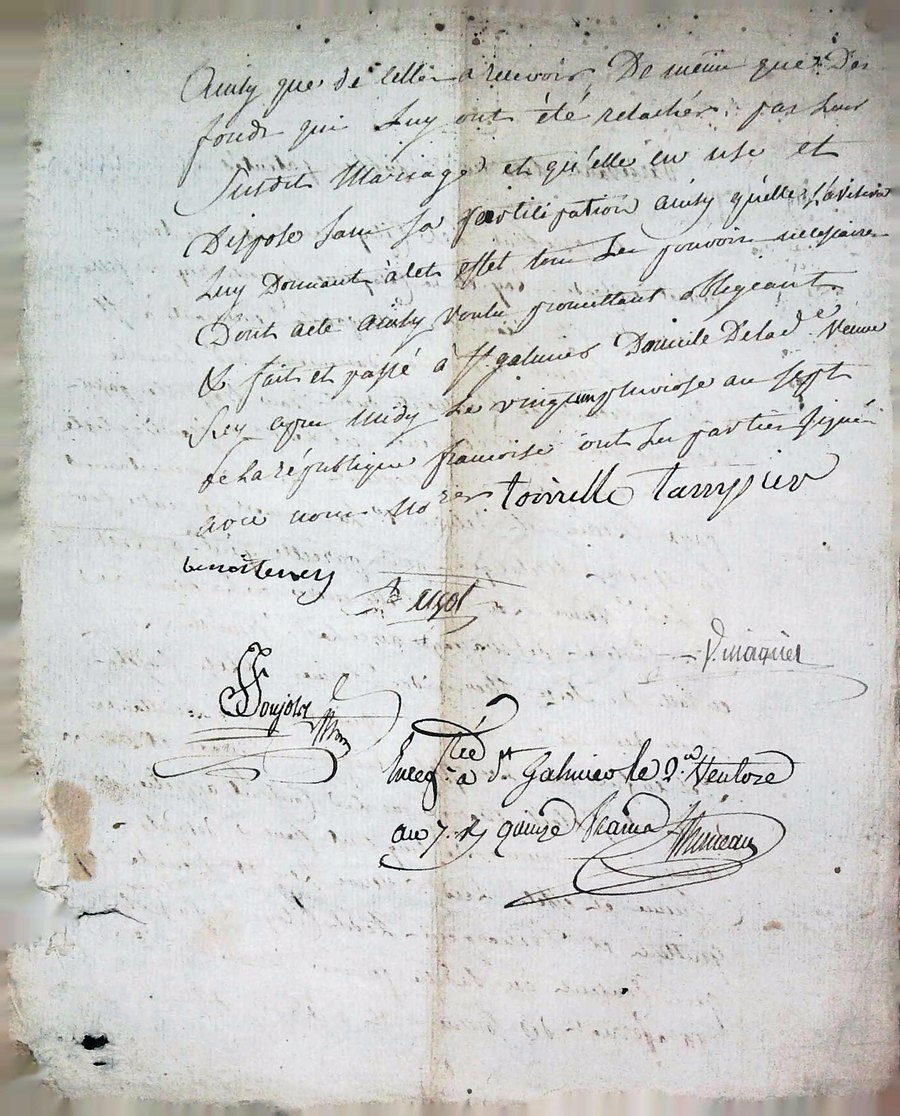 Ainsy que de celle a recevoir, De meme que Des
fonds qui Luy ont été relachés par Leur
Susdit Mariage et qu'elle en use et
Dispose sans sa participation ainsy qu'elle avisera
Luy Donnant à cet effet tous Les pouvoirs necessaires
Dont acte ainsy voulu promettant obligeant
& fait et passé à St galmier Domicile De lad.e Veuve
Rey apres midy Le vingt un pluviose an sept
de la république francoise ont Les parties signé
avec nous No.res tovrelle tarrysier
benoit
Pugot
Soujolot
Enregtrée a St Galmier le 2 Ventose
an 7. R quinze francs